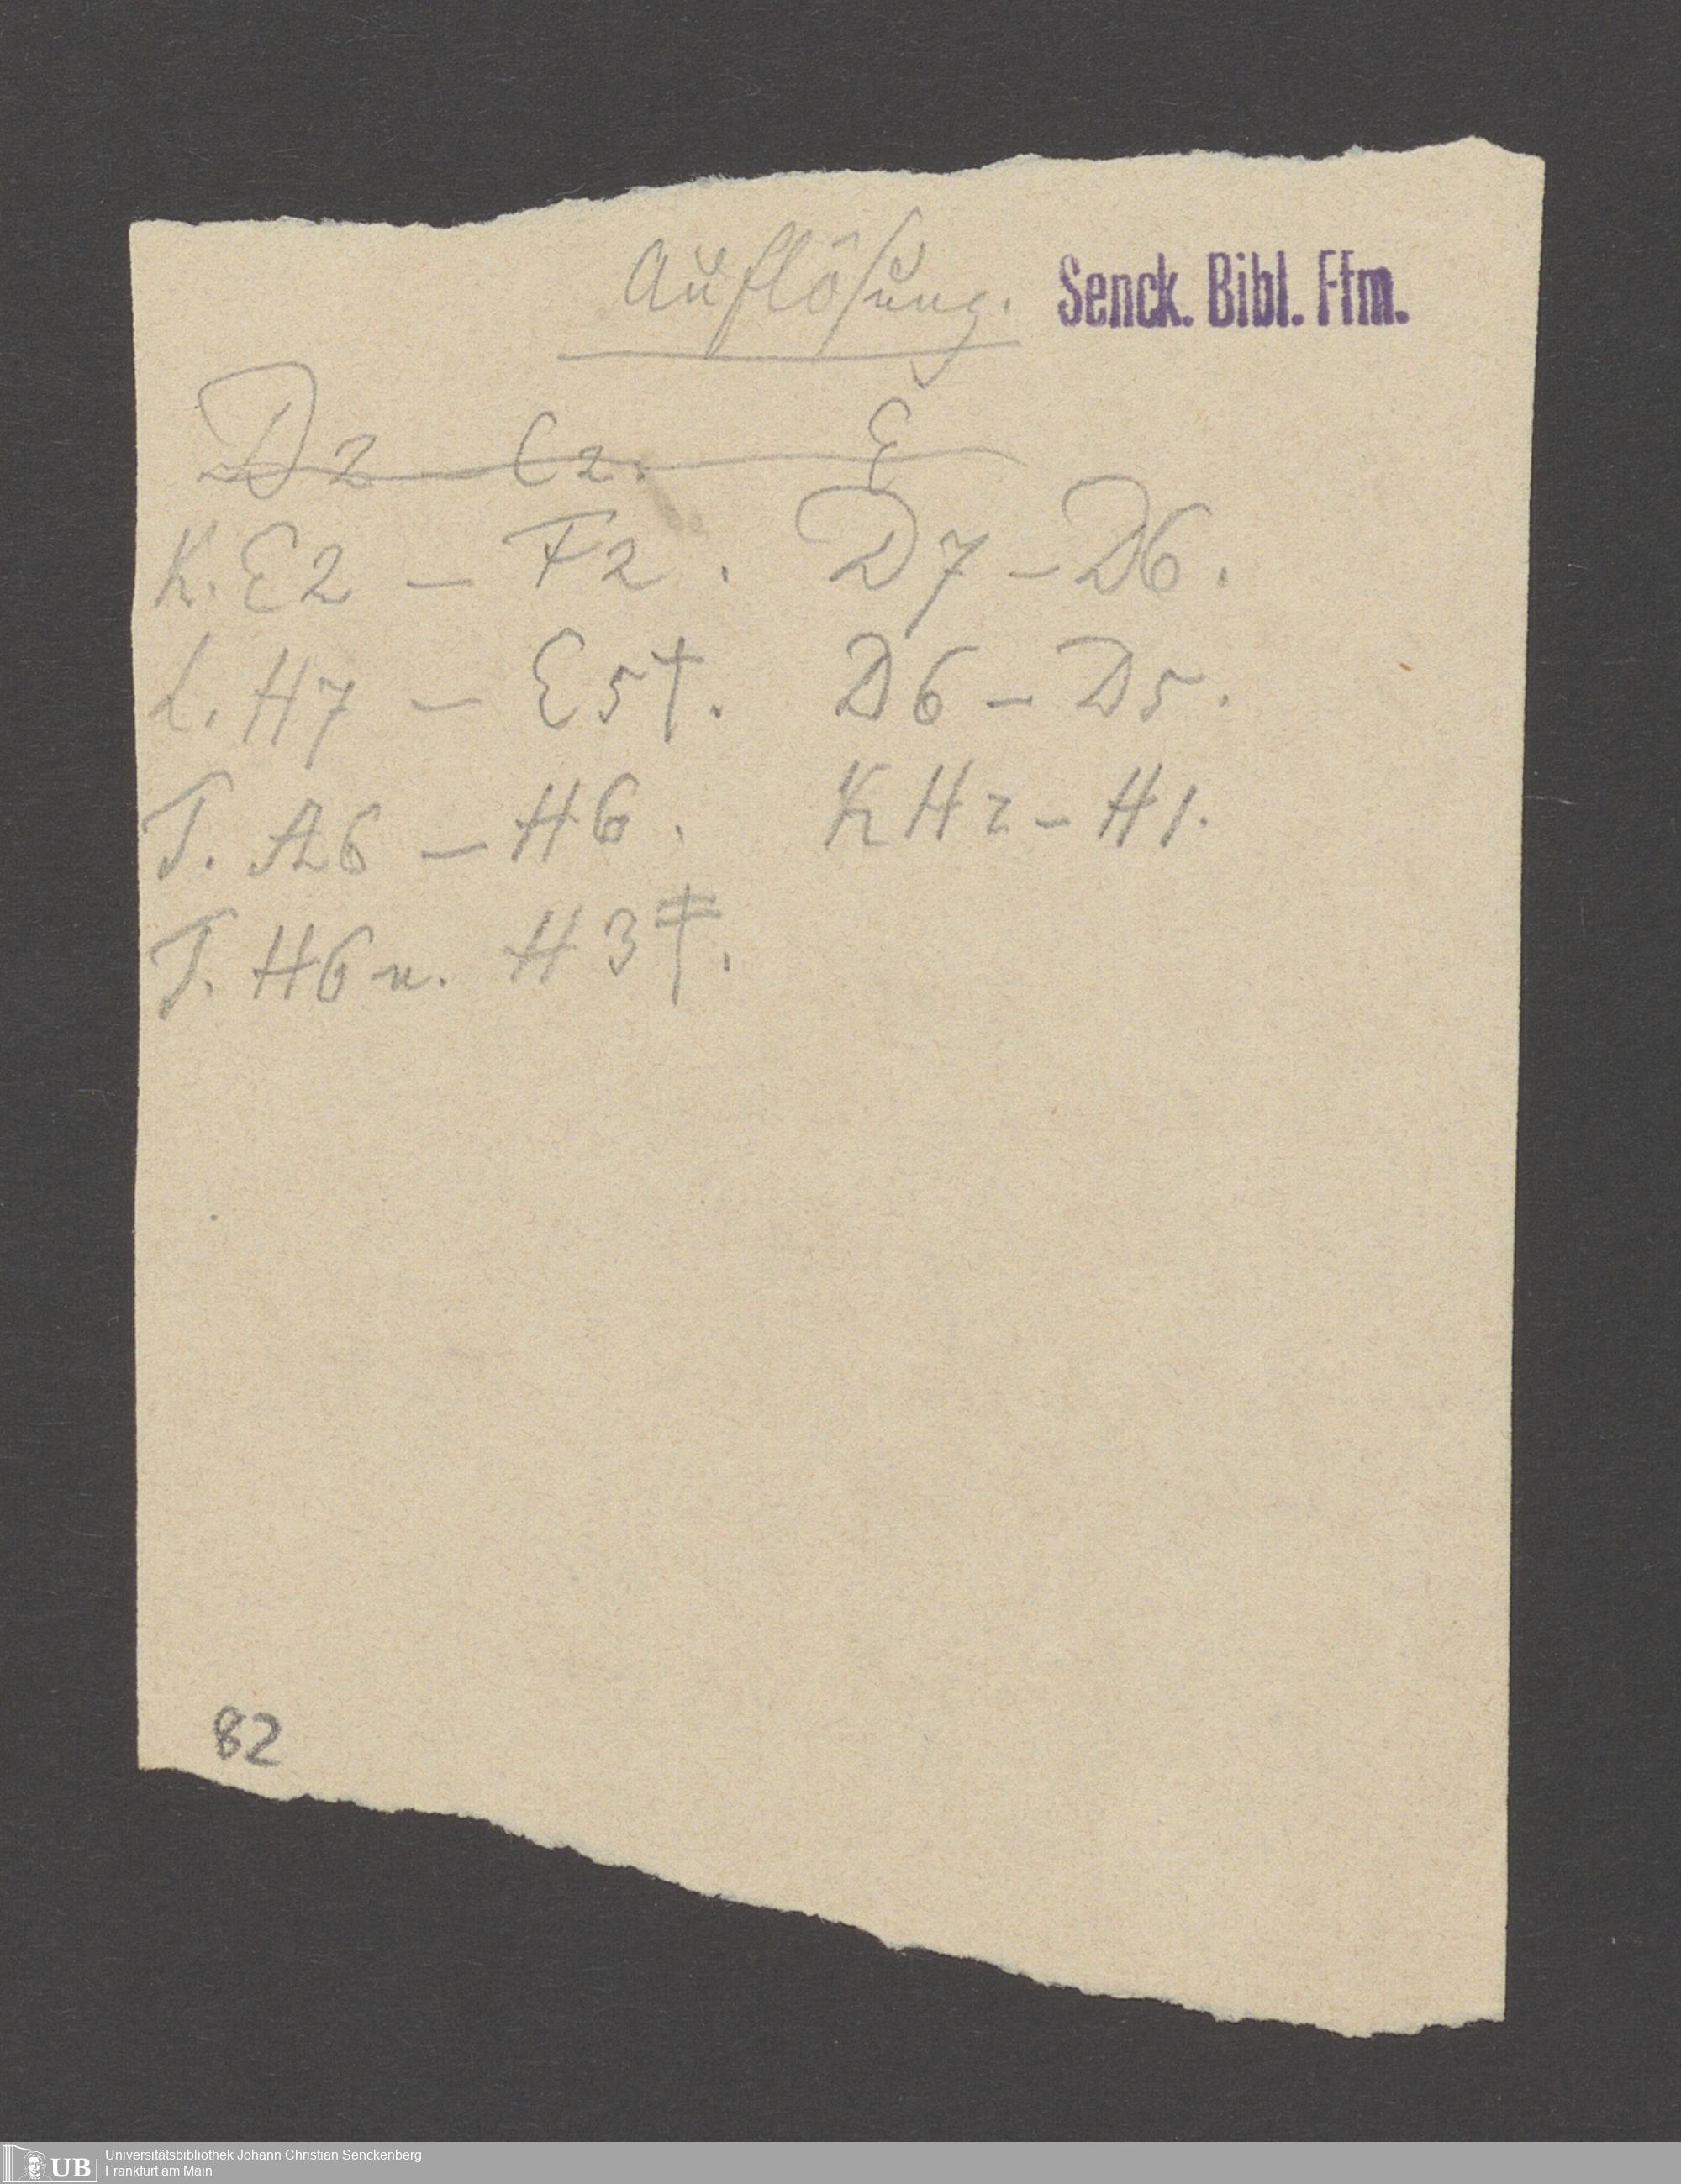 Auflösung. Senck. Bibl. Ffm.
D2 – C2. E
K. E2 – F2. D7 – D6.
L. H7 – E5†. D6 – D5.
T. A6 – H6. K H2 – H1.
T. H6 n. H3‡.
82
UB Universitätsbibliothek Johann Christian Senckenberg
Frankfurt am Main